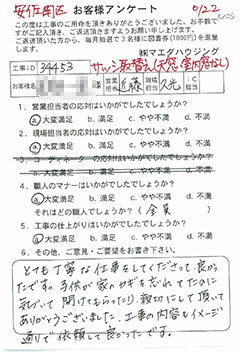 安佐南区 お客様アンケート 0/22
この度は工事のご用命を頂きありがとうございました。お手数で
すがご記入頂き、ご返送頂きますようお願い申し上げます。
ご返送頂いた方から、毎月抽選で3名様に図書券(1000円)を進呈
㈱マエダハウジング
工事ID 34453 サッシ取替え(大窓、室内窓なし)
お客様名 様 営業担当 近藤 現場担当 久光 IC担当
1. 営業担当者の応対はいかがでしたでしょうか?
ⓐ大変満足 b. 満足 c. やや不満 d. 不満
2. 現場担当者の応対はいかがでしたでしょうか?
ⓐ大変満足 b. 満足 c. やや不満 d. 不満
3. コーディネーターの応対はいかがでしたでしょうか?
a. 大変満足 b. 満足 c. やや不満 d. 不満
4. 職人のマナーはいかがでしたでしょうか?
ⓐ大変満足 b. 満足 c. やや不満 d. 不満
それはどの職人でしょうか?(全員)
5. 工事の仕上がりはいかがでしたでしょうか?
ⓐ大変満足 b. 満足 c. やや不満 d. 不満
6. その他、ご意見・ご要望をお書き下さい。
とても丁寧な仕事をしてくださって、良かっ
たです。子供が家のカギを忘れてたのに
気がついて開けてもらったり、親切にして頂いて
ありがとうございました。工事の内容もイメージ
通りで依頼して良かったです。